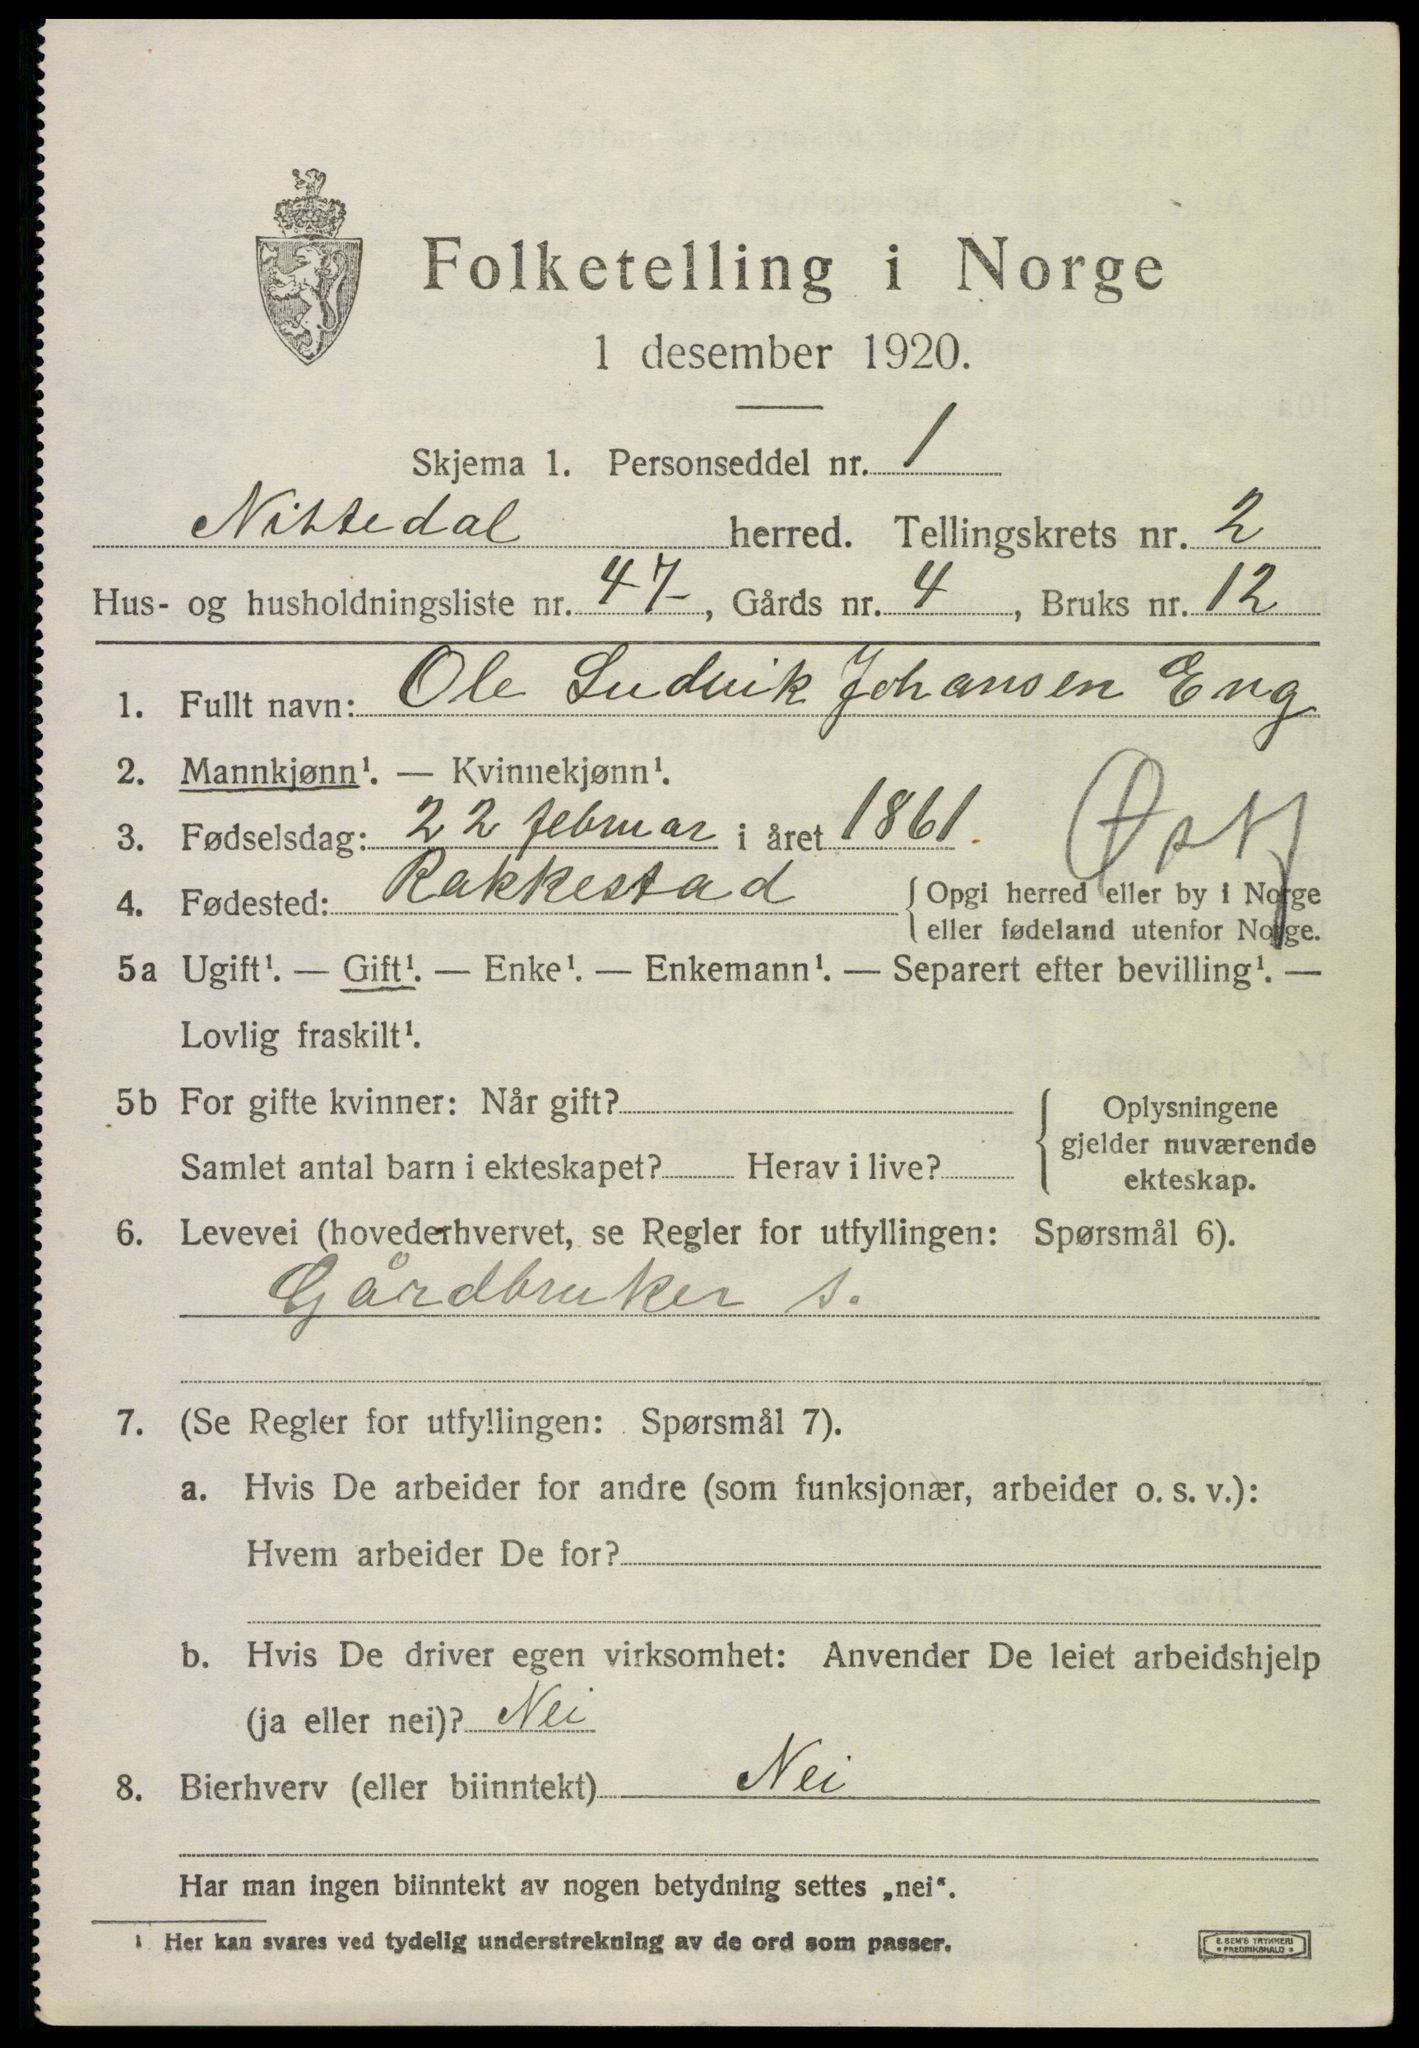 Folketelling i Norge
1 desember 1920.
Skjema 1. Personseddel nr. 1
Nittedal herred. Tellingskrets nr. 2
Hus- og husholdningsliste nr. 47, Gårds nr. 4, Bruks nr. 12
1. Fullt navn: Ole Ludvik Johansen Eng
2. Mannkjønn¹. — Kvinnekjønn¹.
3. Fødselsdag: 22 februar i året 1861.
Østf
4. Fødested: Rakkestad { Opgi herred eller by i Norge
eller fødeland utenfor Norge.
5a Ugift¹. — Gift¹. — Enke¹. — Enkemann¹. — Separert efter bevilling¹. —
Lovlig fraskilt¹.
5b For gifte kvinner: Når gift? { Oplysningene
gjelder nuværende
Samlet antal barn i ekteskapet? Herav i live? ekteskap.
6. Levevei (hovederhvervet, se Regler for utfyllingen: Spørsmål 6).
Gårdbruker s.
7. (Se Regler for utfyllingen: Spørsmål 7).
a. Hvis De arbeider for andre (som funksjonær, arbeider o. s. v.):
Hvem arbeider De for?
b. Hvis De driver egen virksomhet: Anvender De leiet arbeidshjelp
(ja eller nei)? Nei
8. Bierhverv (eller biinntekt) Nei
Har man ingen biinntekt av nogen betydning settes „nei“.
¹ Her kan svares ved tydelig understrekning av de ord som passer.
E. SEM'S TRYKKERI
FREDRIKSHALD